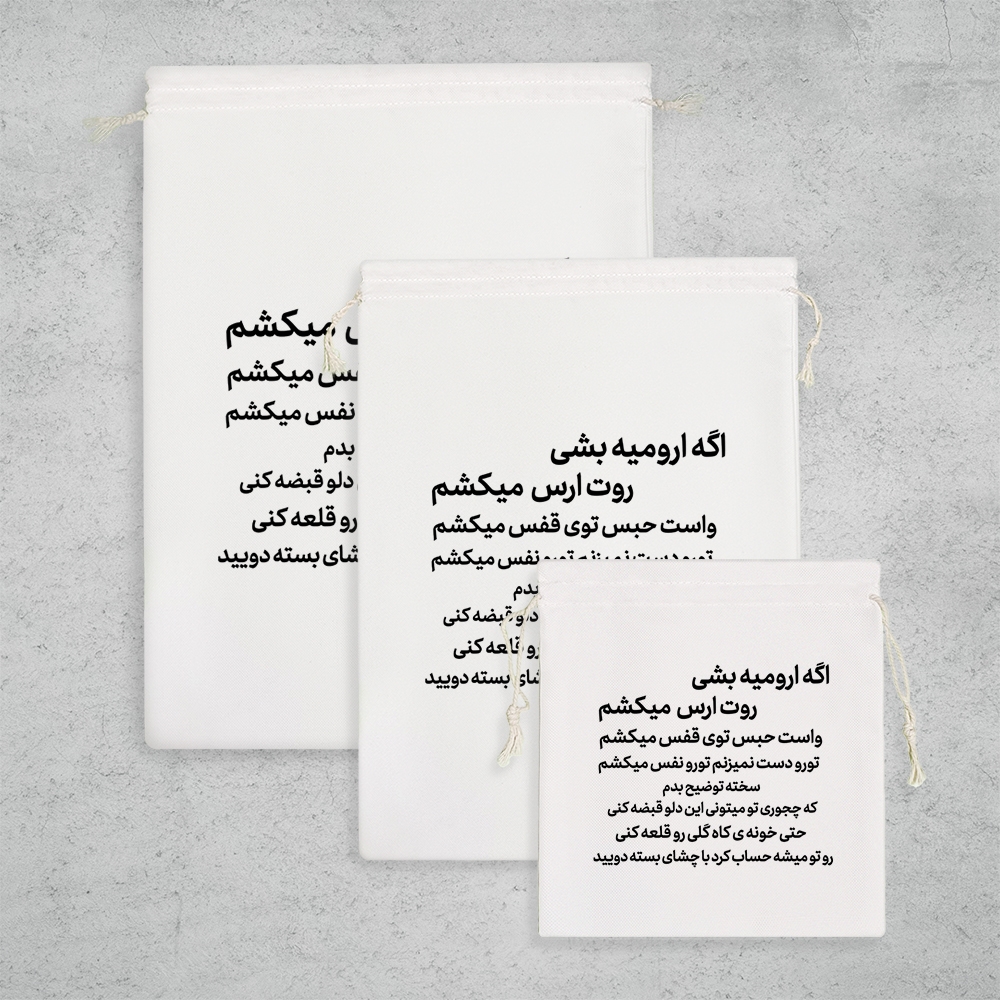 میکشم
میکشم
نفس میکشم
بدم
دلو قبضه کنی
رو قلعه کنی
شای بسته دویید
اگه ارومیه بشی
روت ارس میکشم
واست حبس توی قفس میکشم
تورو دست نمیزنم تورو نفس میکشم
بدم
دلو قبضه کنی
رو قلعه کنی
شای بسته دویید
اگه ارومیه بشی
روت ارس میکشم
واست حبس توی قفس میکشم
تورو دست نمیزنم تورو نفس میکشم
سخته توضیح بدم
که چجوری تو میتونی این دلو قبضه کنی
حتی خونه ی کاه گلی رو قلعه کنی
رو تو میشه حساب کرد با چشای بسته دویید